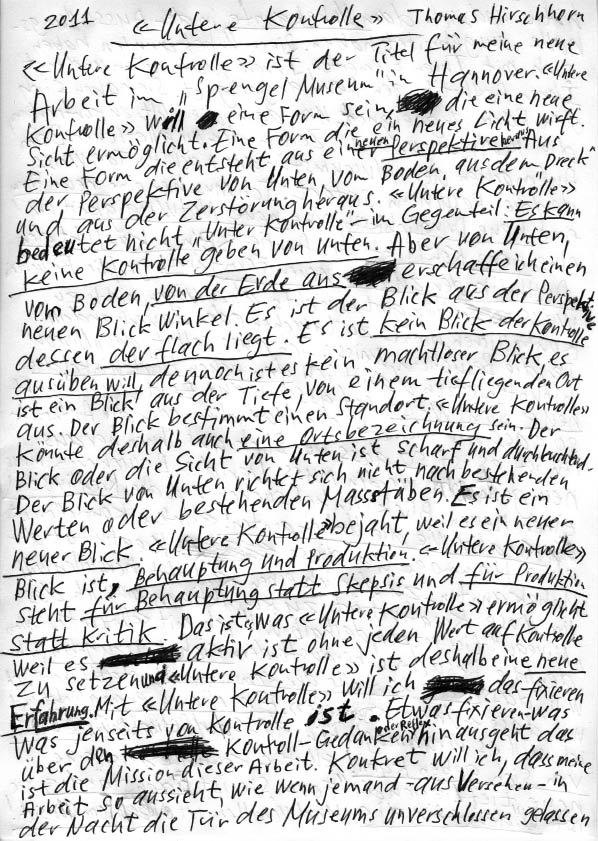 2011 «Untere Kontrolle» Thomas Hirschhorn
«Untere Kontrolle» ist der Titel für meine neue
Arbeit im „Sprengel Museum" in Hannover. «Untere
Kontrolle» will eine Form sein, die eine neue
Sicht ermöglicht. Eine Form die ein neues Licht wirft.
Eine Form die entsteht aus einer neuen Perspektive heraus. Aus
der Perspektive von Unten, vom Boden, aus dem „Dreck"
und aus der Zerstörung heraus. «Untere Kontrolle»
bedeutet nicht „Unter Kontrolle" – im Gegenteil: Es kann
keine Kontrolle geben von unten. Aber von Unten,
vom Boden, von der Erde aus erschaffe ich einen
neuen Blickwinkel. Es ist der Blick aus der Perspektive
dessen der flach liegt. Es ist kein Blick der Kontrolle
ausüben will, dennoch ist es kein machtloser Blick, es
ist ein Blick aus der Tiefe, von einem tiefliegenden Ort
aus. Der Blick bestimmt einen Standort. «Untere Kontrolle»
könnte deshalb auch eine Ortsbezeichnung sein. Der
Blick oder die Sicht von Unten ist scharf und durchleuchtend.
Der Blick von Unten richtet sich nicht nach bestehenden
Werten oder bestehenden Massstäben. Es ist ein
neuer Blick. «Untere Kontrolle» bejaht, weil es ein neuer
Blick ist, Behauptung und Produktion. «Untere Kontrolle»
steht für Behauptung statt Skepsis und für Produktion
statt Kritik. Das ist es, was «Untere Kontrolle» ermöglicht
weil es aktiv ist ohne jeden Wert auf Kontrolle
zu setzen und «Untere Kontrolle» ist deshalb eine neue
Erfahrung. Mit «Untere Kontrolle» will ich das fixieren
was jenseits von Kontrolle ist. Etwas fixieren was
über den Kontroll-Gedanken oder Reflex hinausgeht das
ist die Mission dieser Arbeit. Konkret will ich, dass meine
Arbeit so aussieht, wie wenn jemand – aus Versehen – in
der Nacht die Tür des Museums unverschlossen gelassen